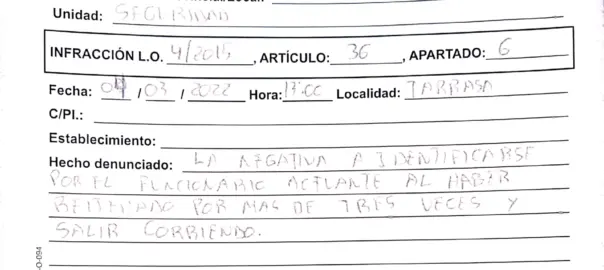 Unidad: SEGURIDAD
INFRACCIÓN L.O. 4/2015, ARTÍCULO: 36, APARTADO: 6
Fecha: 04 / 03 / 2022 Hora: 17:00 Localidad: TARRASA
C/Pl.:
Establecimiento:
Hecho denunciado: LA NEGATIVA A IDENTIFICARSE
POR EL FUNCIONARIO ACTUANTE AL HABER
REITERADO POR MAS DE TRES VECES Y
SALIR CORRIENDO.
O-094